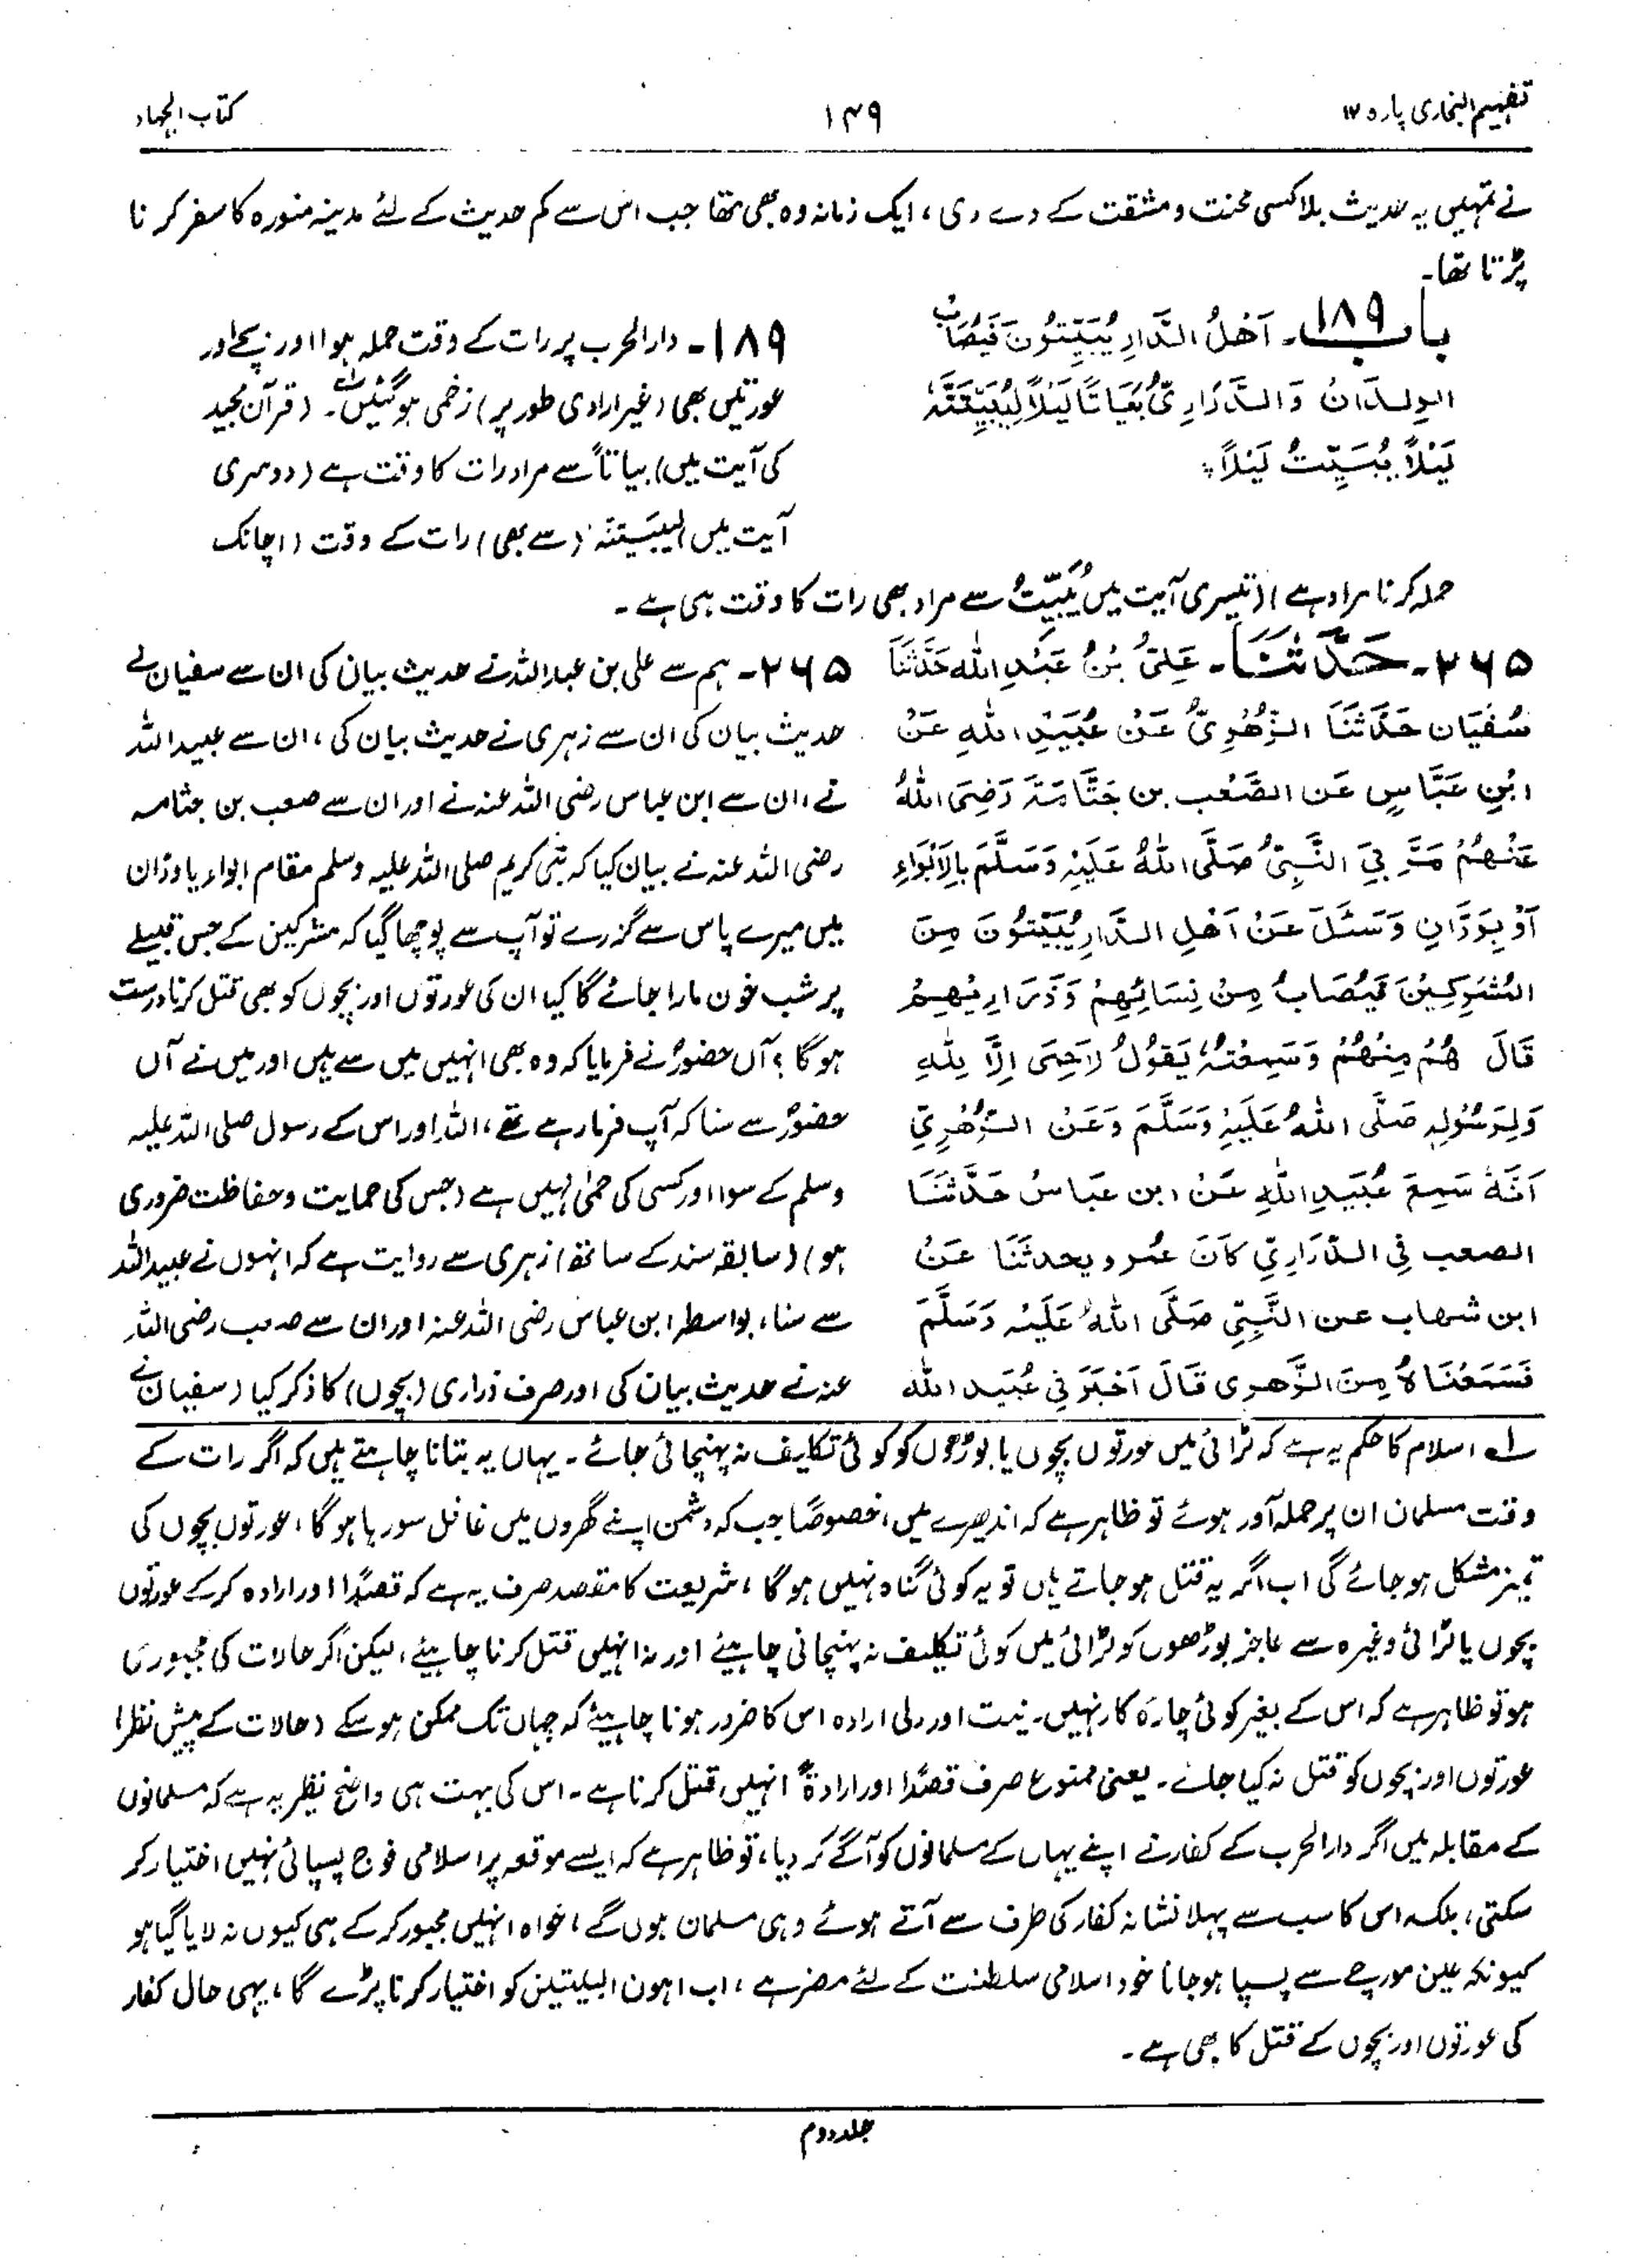 تفہیم البخاری پارہ ۱۲
۱۴۹
کتاب الجہاد
نے تمہیں یہ حدیث بلا کسی محنت و مشقت کے دے دی، ایک زمانہ وہ بھی تھا جب اس سے کم حدیث کے لئے مدینہ منورہ کا سفر کرنا
پڑتا تھا۔
باب ۱۸۹۔ اَھْلُ الدَّارِ یُبَیَّتُوْنَ فَیُصَابُ
الوِلْدَانُ وَالذَّرَارِیُّ بَیَاتًا لَیْلًا لَیُبَیِّتَنَّہٗ
لَیْلًا یُبَیِّتُ لَیْلًا
۱۸۹۔ دارالحرب پر رات کے وقت حملہ ہوا اور بچے اور
عورتیں بھی (غیر ارادی طور پر) زخمی ہو گئیں۔ (قرآن مجید
کی آیت میں) بیاتاً سے مراد رات کا وقت ہے (دوسری
آیت میں) لیبیتنہ (سے بھی) رات کے وقت (اچانک
حملہ کرنا مراد ہے) (تیسری آیت میں یُبَیِّتُ سے مراد بھی رات کا وقت ہی ہے۔
۲۶۵۔ حَدَّثَنَا۔ عَلِیُّ بْنُ عَبْدِ اللہ حَدَّثَنَا
سُفْیَان حَدَّثَنَا الزُّھْرِیُّ عَنْ عُبَیْدِ اللہِ عَنْ
ابْنِ عَبَّاسٍ عَنِ الصَّعْبِ بن جَثَّامَۃَ رَضِیَ اللہُ
عَنْھُمْ مَرَّ بِیَ النَّبِیُّ صَلَّی اللہُ عَلَیْہِ وَسَلَّمَ بِالْاَبْوَاءِ
اَوْ بِوَدَّانٍ وَسُئِلَ عَنْ اَھْلِ الدَّارِ یُبَیَّتُوْنَ مِنَ
الْمُشْرِکِیْنَ فَیُصَابُ مِنْ نِسَائِھِمْ وَذَرَارِیْھِمْ
قَالَ ھُمْ مِنْھُمْ وَسَمِعْتُہٗ یَقُوْلُ لَاحِمٰی اِلَّا لِلّٰہِ
وَلِرَسُوْلِہٖ صَلَّی اللہُ عَلَیْہِ وَسَلَّمَ وَعَنِ الزُّھْرِیِّ
اَنَّہٗ سَمِعَ عُبَیْدِ اللہِ عَنْ ابن عَبَاسٍ حَدَّثَنَا
الصعب فِی الذَّرَارِیِّ کَانَ عَمْرو یحدثَنَا عَنْ
ابن شھاب عن النَّبِیِّ صَلَّی اللہُ عَلَیْہِ وَسَلَّمَ
فَسَمِعْنَاہُ مِنَ الزُّھری قَالَ اَخْبَرَنِی عُبَید اللہ
۲۶۵۔ ہم سے علی بن عبداللہ نے حدیث بیان کی ان سے سفیان نے
حدیث بیان کی ان سے زہری نے حدیث بیان کی، ان سے عبید اللہ
نے، ان سے ابن عباس رضی اللہ عنہ نے اور ان سے صعب بن جثامہ
رضی اللہ عنہ نے بیان کیا کہ نبی کریم صلی اللہ علیہ وسلم مقام ابواء یا ودّان
میں میرے پاس سے گزرے تو آپ سے پوچھا گیا کہ مشرکین کے جس قبیلے
پر شب خون مارا جائے گا کیا ان کی عورتوں اور بچوں کو بھی قتل کرنا درست
ہو گا؟ آں حضورؐ نے فرمایا کہ وہ بھی انہیں میں سے ہیں اور میں نے آں
حضورؐ سے سنا کہ آپ فرما رہے تھے، اللہ اور اس کے رسول صلی اللہ علیہ
وسلم کے سوا اور کسی کی حمٰی نہیں ہے (جس کی حمایت و حفاظت ضروری
ہو) (سابقہ سند کے ساتھ) زہری سے روایت ہے کہ انہوں نے عبید اللہ
سے سنا، بواسطہ ابن عباس رضی اللہ عنہ اور ان سے صعب رضی اللہ
عنہ نے حدیث بیان کی اور صرف ذراری (بچوں) کا ذکر کیا (سفیان نے
لہ اسلام کا حکم یہ ہے کہ لڑائی میں عورتوں بچوں یا بوڑھوں کو کوئی تکلیف نہ پہنچائی جائے۔ یہاں یہ بتانا چاہتے ہیں کہ اگر رات کے
وقت مسلمان ان پر حملہ آور ہوئے تو ظاہر ہے کہ اندھیرے میں، خصوصًا جب کہ دشمن اپنے گھروں میں غافل سو رہا ہو گا، عورتوں بچوں کی
تمیز مشکل ہو جائے گی اب اگر یہ قتل ہو جاتے ہیں تو یہ کوئی گناہ نہیں ہو گا، شریعت کا مقصد صرف یہ ہے کہ قصدًا اور ارادہ کر کے عورتوں
بچوں یا لڑائی وغیرہ سے عاجز بوڑھوں کو لڑائی میں کوئی تکلیف نہ پہنچانی چاہیئے اور نہ انہیں قتل کرنا چاہیئے، لیکن اگر حالات کی مجبوری
ہو تو ظاہر ہے کہ اس کے بغیر کوئی چارۂ کار نہیں۔ نیت اور دلی ارادہ اس کا ضرور ہونا چاہیئے کہ جہاں تک ممکن ہو سکے (حالات کے پیش نظر)
عورتوں اور بچوں کو قتل نہ کیا جائے۔ یعنی ممنوع صرف قصدًا اور ارادۃً انہیں قتل کرنا ہے۔ اس کی بہت ہی واضح نظیر یہ ہے کہ مسلمانوں
کے مقابلہ میں اگر دارالحرب کے کفار نے اپنے یہاں کے مسلمانوں کو آگے کر دیا، تو ظاہر ہے کہ ایسے موقعہ پر اسلامی فوج پسپائی نہیں اختیار کر
سکتی، بلکہ اس کا سب سے پہلا نشانہ کفار کی طرف سے آتے ہوئے وہی مسلمان ہوں گے، خواہ انہیں مجبور کر کے ہی کیوں نہ لایا گیا ہو
کیونکہ عین مورچے سے پسپا ہو جانا خود اسلامی سلطنت کے لئے مضر ہے، اب اہون البلیتین کو اختیار کرنا پڑے گا، یہی حال کفار
کی عورتوں اور بچوں کے قتل کا بھی ہے۔
جلد دوم